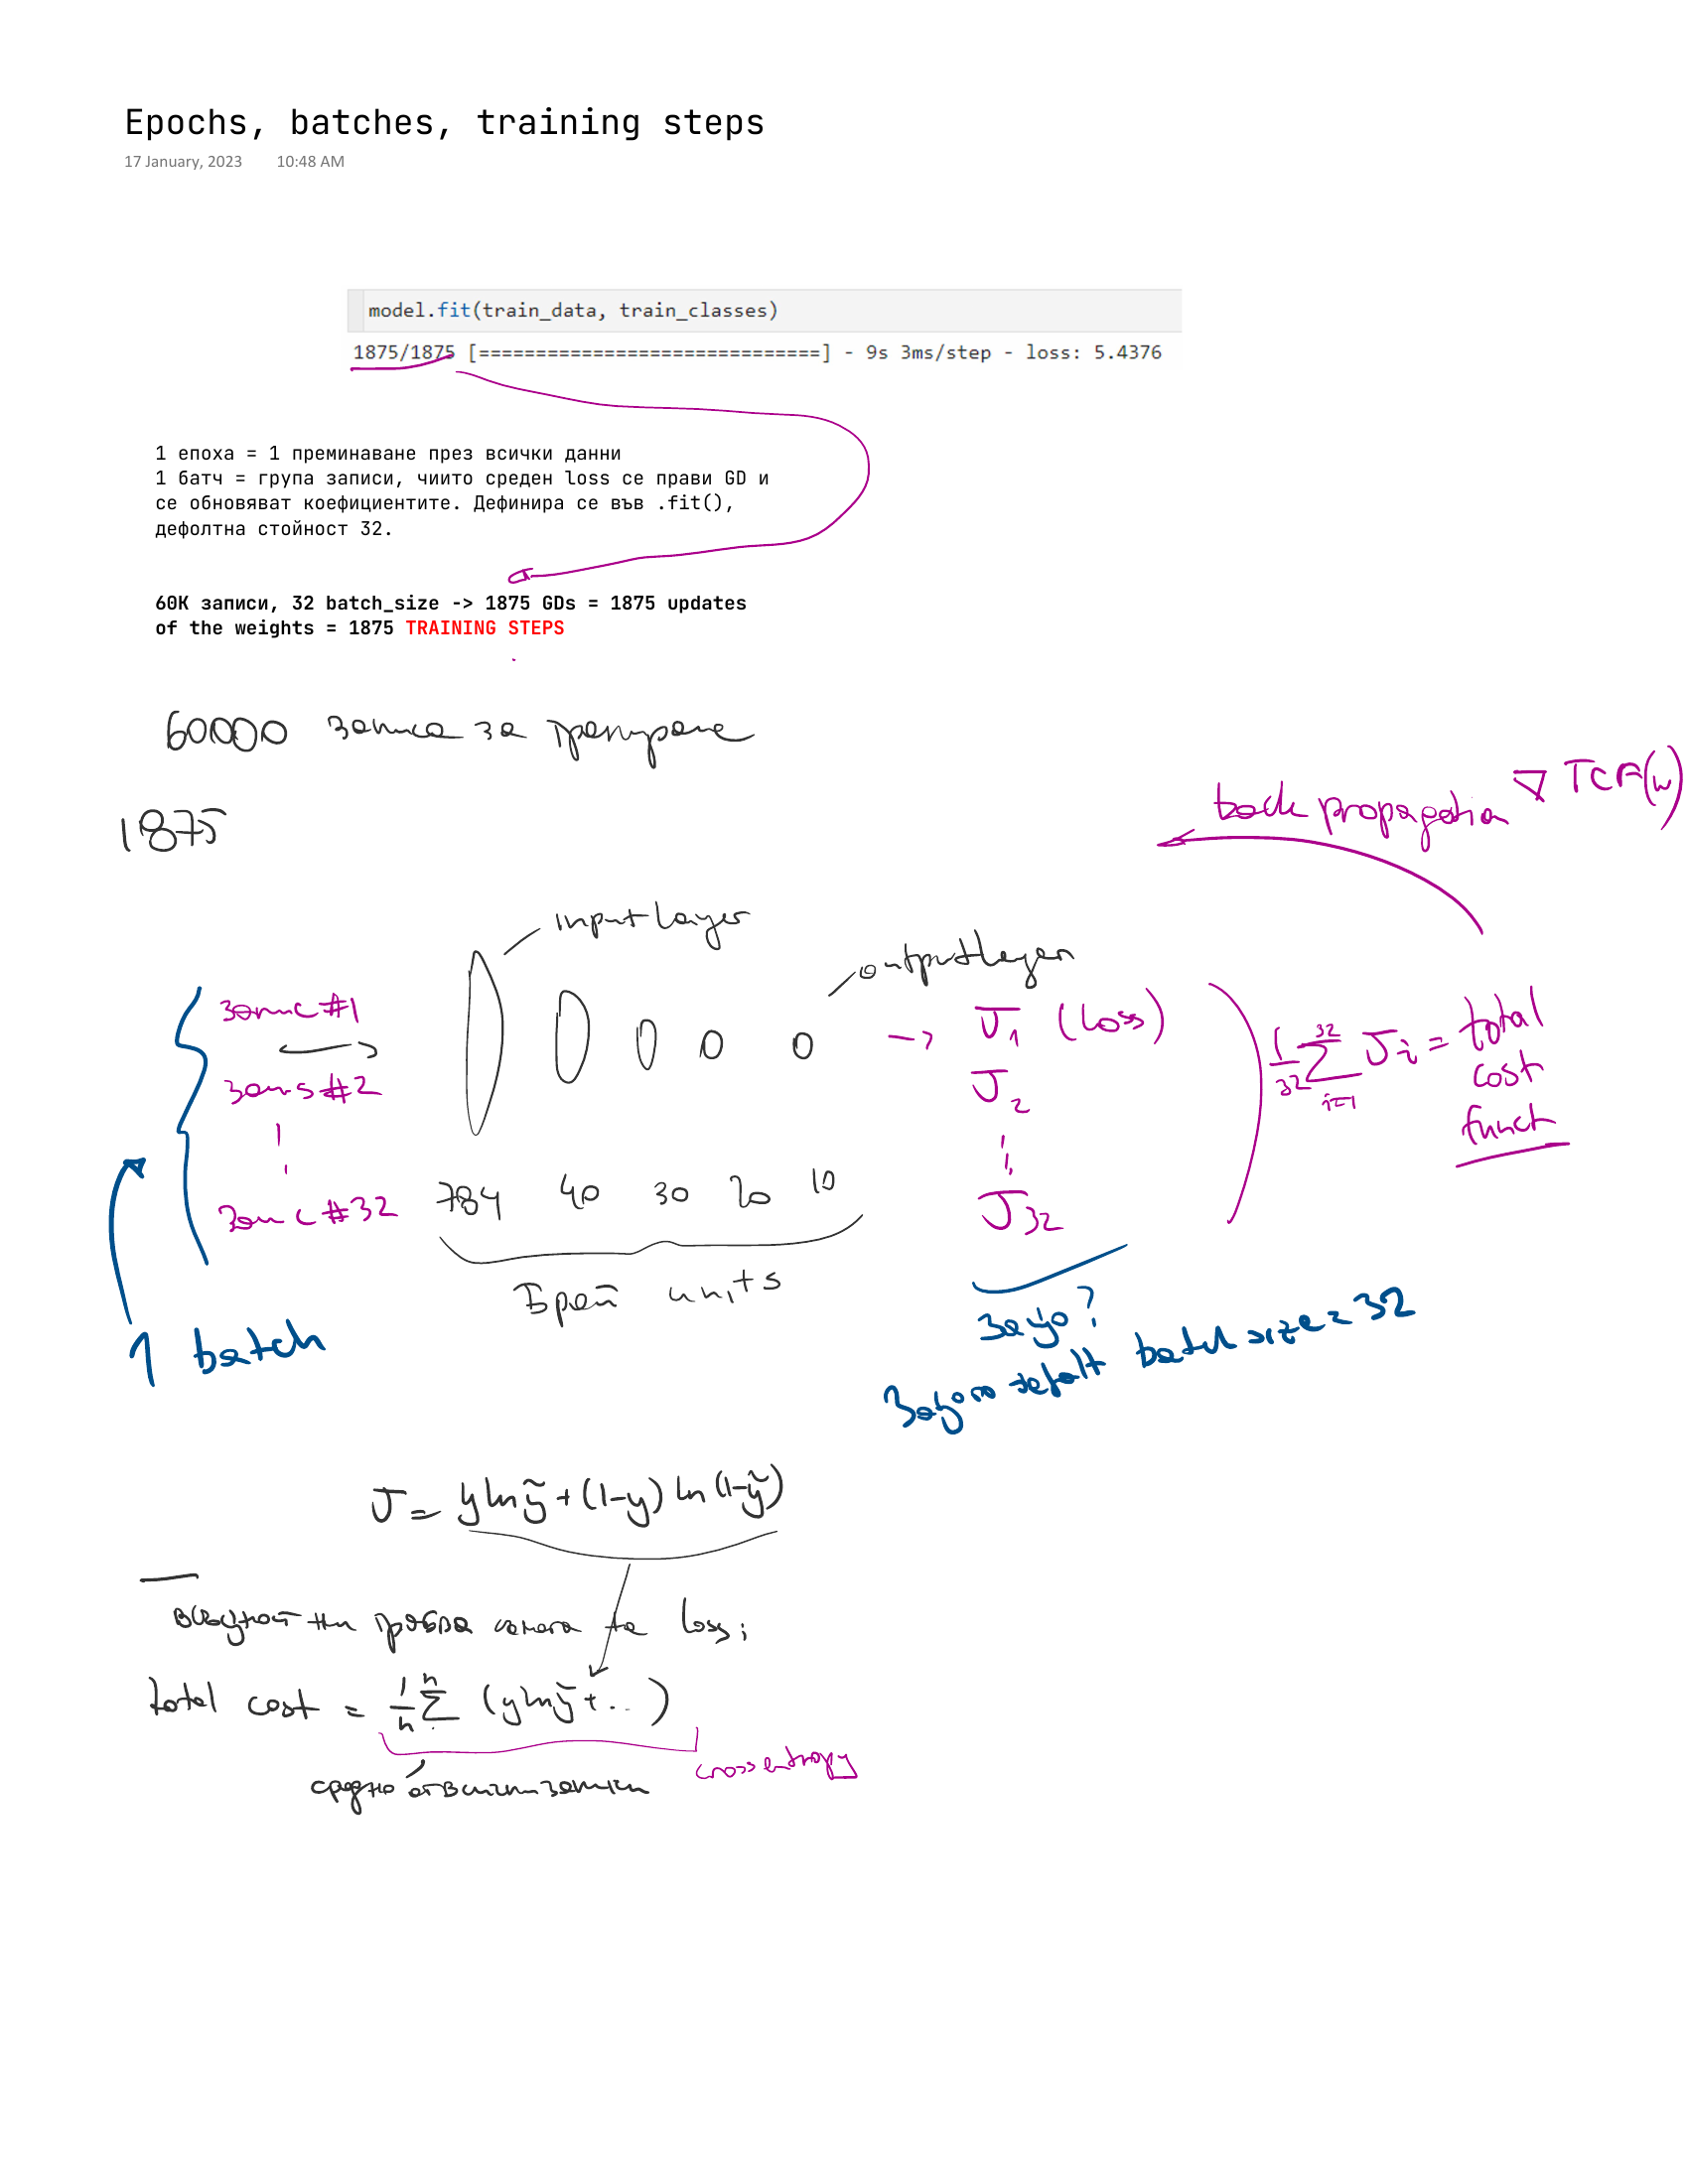 Epochs, batches, training steps
17 January, 2023 10:48 AM
model.fit(train_data, train_classes)
1875/1875 [==============================] - 9s 3ms/step - loss: 5.4376
1 епоха = 1 преминаване през всички данни
1 батч = група записи, чиито среден loss се прави GD и
се обновяват коефициентите. Дефинира се във .fit(),
дефолтна стойност 32.
60K записи, 32 batch_size -> 1875 GDs = 1875 updates
of the weights = 1875 TRAINING STEPS
60000 записа за трениране
1875
back propagation ∇ TCF(w)
input layer
output layer
запис #1
запис #2
запис #32
→ J₁ (loss)
J₂
J₃₂
1/32 ∑ᵢ₌₁³² Jᵢ = total
cost
funct
784 40 30 20 10
Брой units
1 batch
Защо?
Защото default batch size = 32
J = y ln ỹ + (1-y) ln (1-ỹ)
loss;
total cost = 1/n ∑ⁿ (y ln ỹ + ...)
cross entropy
средно от всички записи